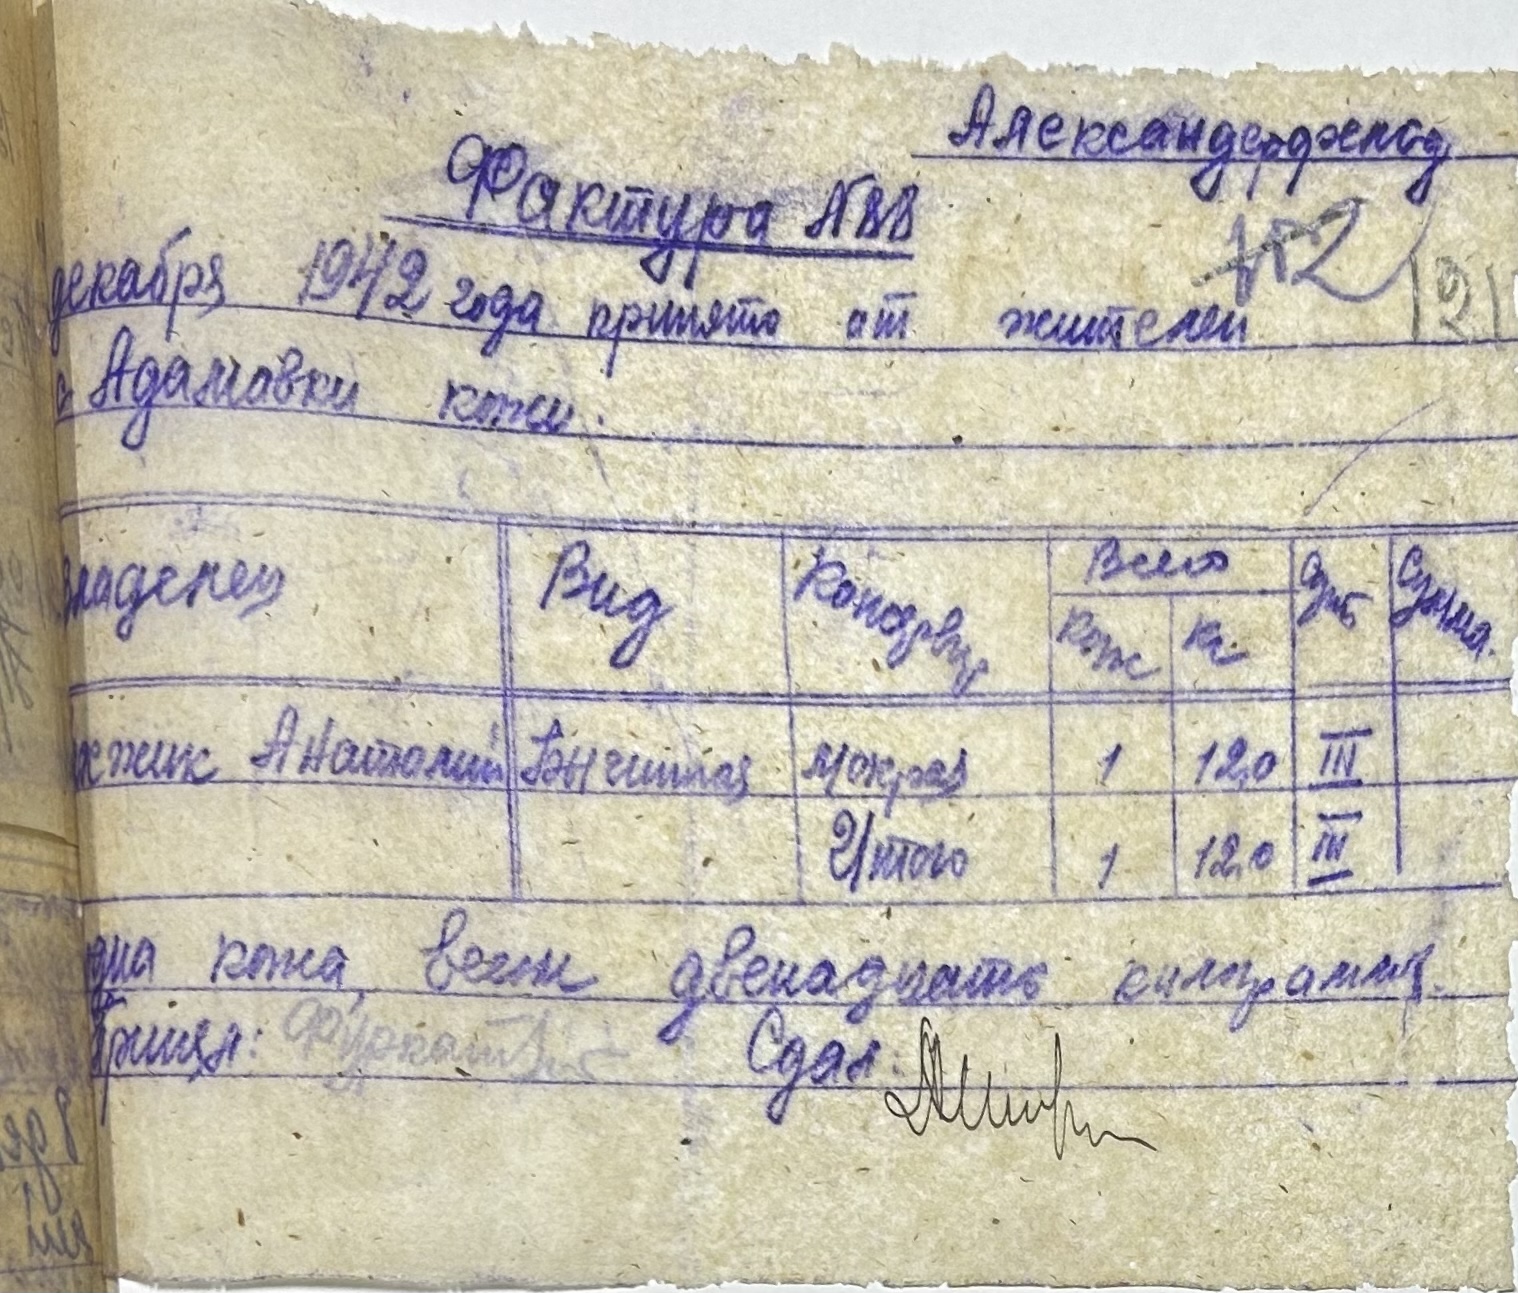 Александерфельд
Фактура №88
декабря 1942 года принято от жителей
с. Адамовки кожи.
Владелец Вид Консервац Всего Сорт Сумма.
Кож кг
Анатолий Бычинная мокрая 1 12,0 III
Итого 1 12,0 III
одна кожа, весом двенадцать килограмм.
Принял: Сдал: